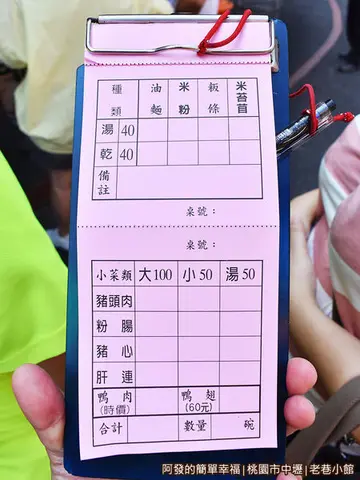 種類 油麵 米粉 粄條 米苔目
湯 40
乾 40
備註
桌號：
桌號：
小菜類 大100 小50 湯50
豬頭肉
粉腸
豬心
肝連
鴨肉(時價) 鴨翅(60元)
合計 數量 碗
阿發的簡單幸福|桃園市中壢|老巷小館